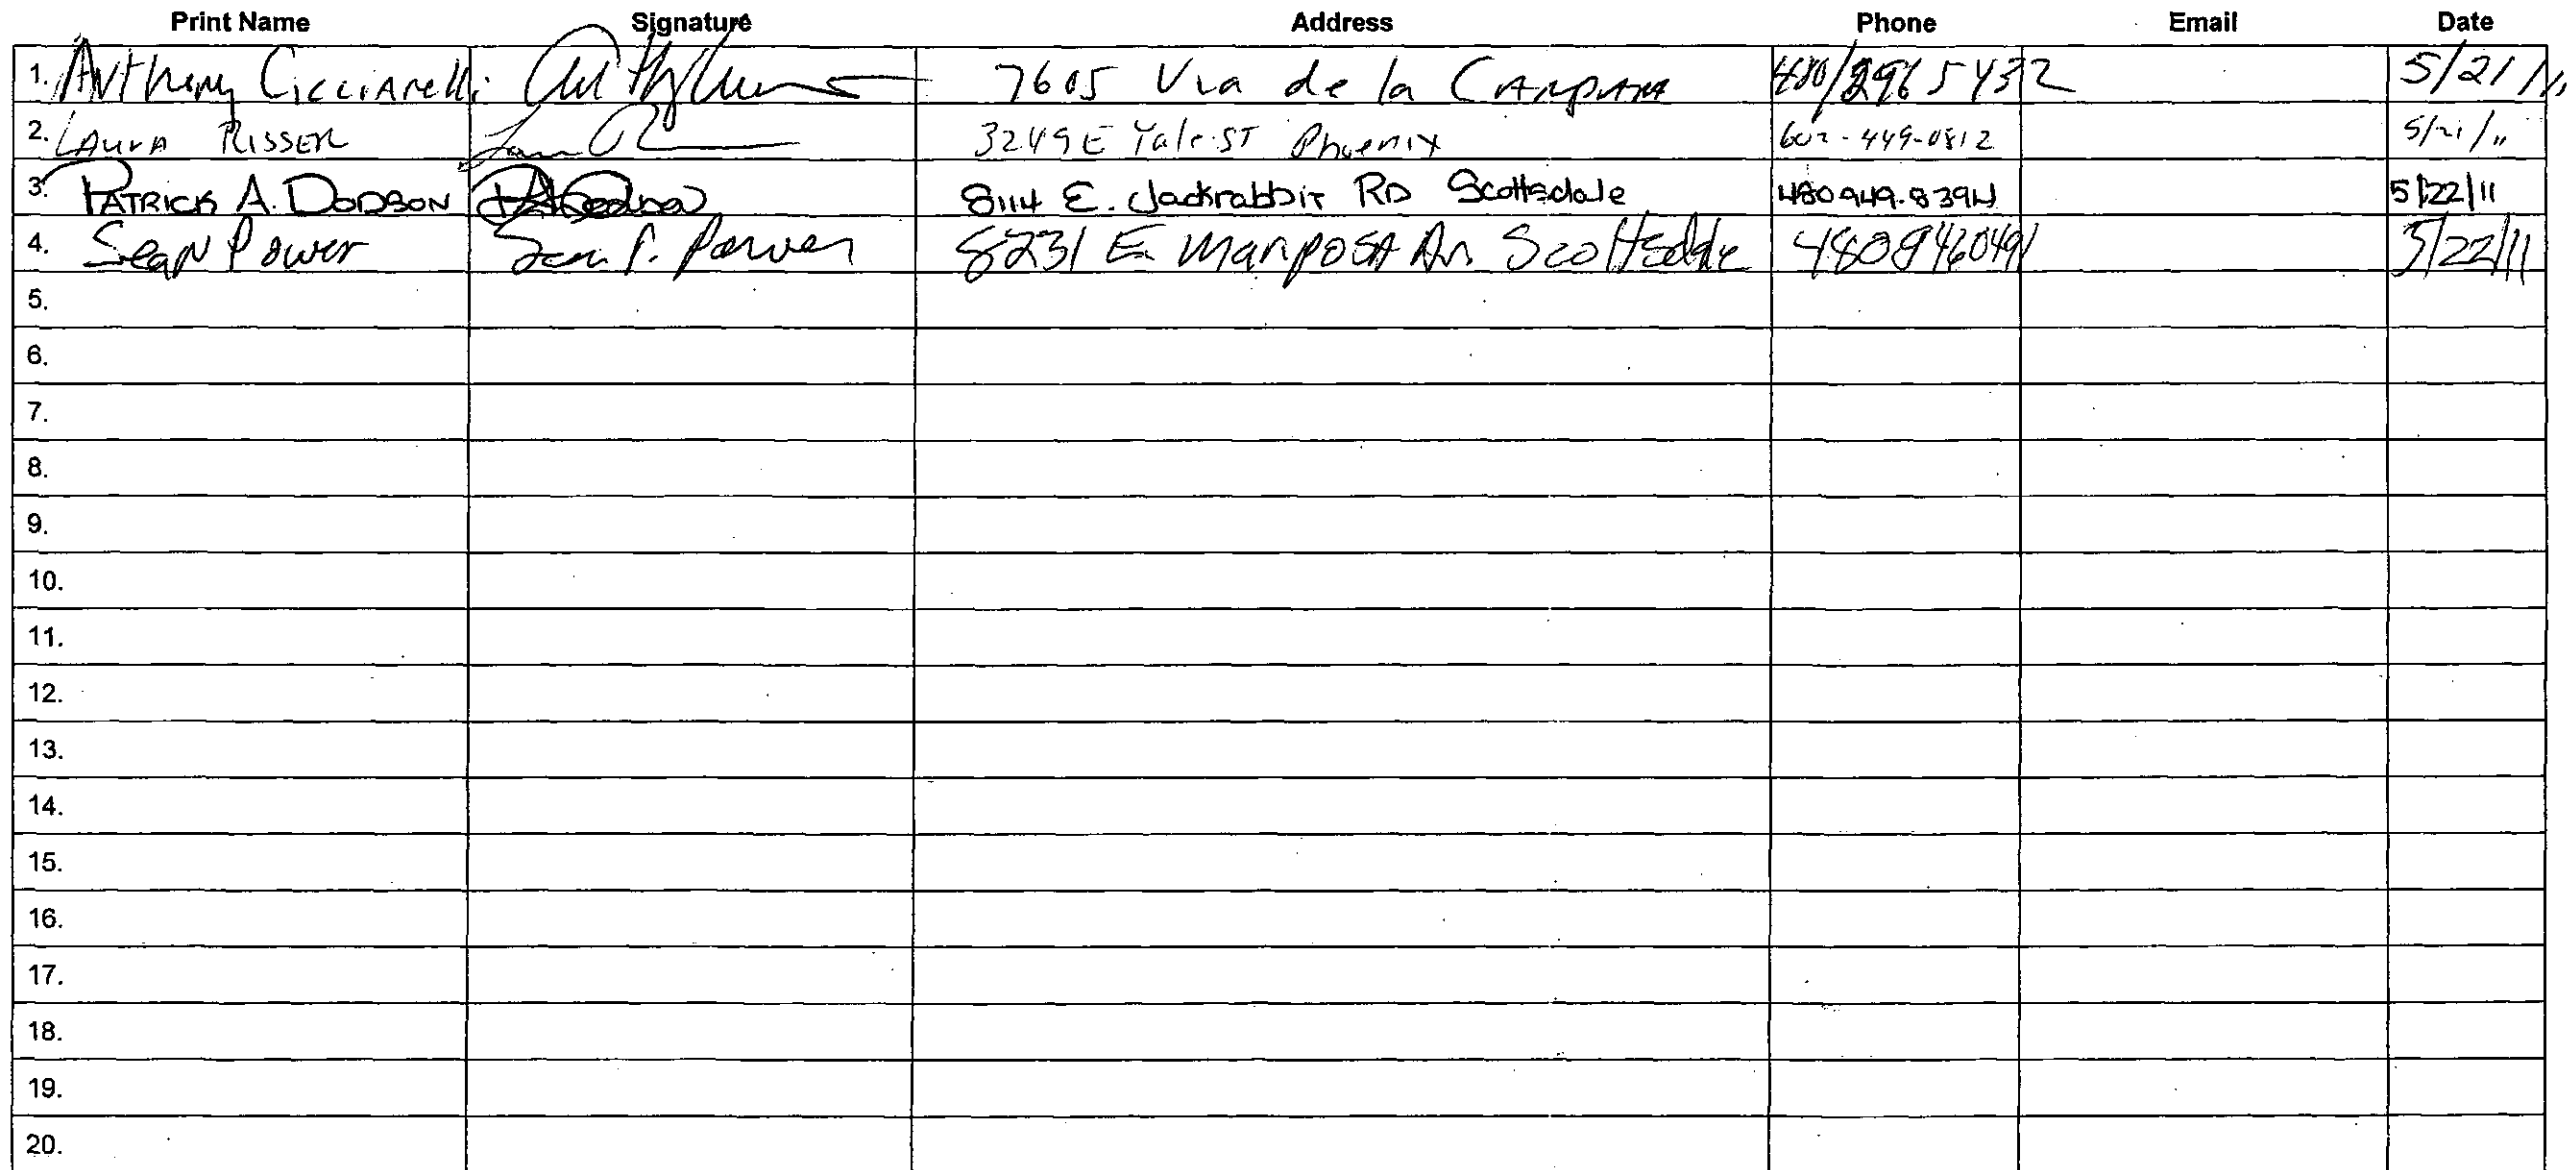 Print Name Signature Address Phone Email Date
1. Anthony Ciccianelli 7605 Via de la Campana 480/296 5432 5/21/11
2. Laura Risser 3249 E Yale ST Phoenix 602-449-0812 5/21/11
3. PATRICK A. DODSON 8114 E. Jackrabbit RD Scottsdale 480 949.8394 5/22/11
4. Sean Power Sean P. Power 8231 E Mariposa Dr Scottsdale 4809460491 5/22/11
5.
6.
7.
8.
9.
10.
11.
12.
13.
14.
15.
16.
17.
18.
19.
20.